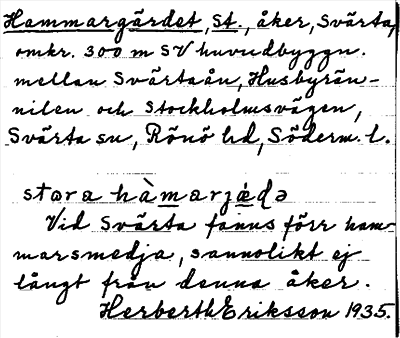 Hammargärdet, St., åker, Svärta,
omkr. 300 m SV huvudbyggn.
mellan Svärtaån, Husbyrän-
nilen och Stockholmsvägen,
Svärta sn, Rönö hd, Söderm. l.
stora hàmarjǽdə
Vid Svärta fanns förr ham-
marsmedja, sannolikt ej
långt från denna åker.
Herberth Eriksson 1935.